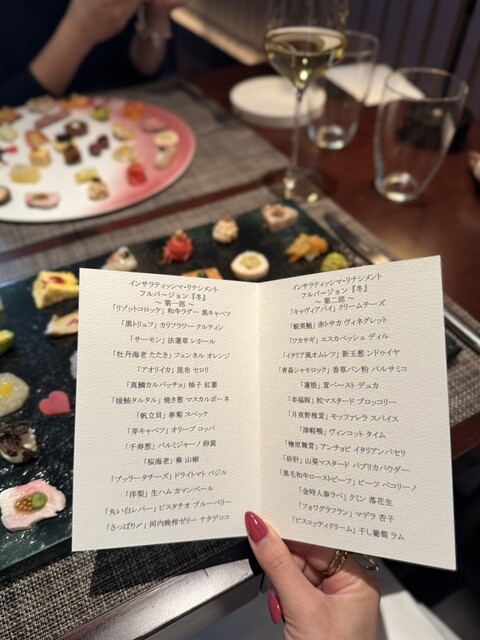 インサラティッシマ・リナシメント
フルバージョン『冬』
～ 第一部 ～
「リゾットコロッケ」和牛ラグー 黒キャベツ
「黒トリュフ」カリフラワー クルティン
「サーモン」法蓮草 レホール
「牡丹海老 たたき」フェンネル オレンジ
「アオリイカ」昆布 セロリ
「真鯛カルパッチョ」柚子 紅蓼
「鰤タルタル」焼き葱 マスカルポーネ
「帆立貝」春菊 スペック
「芽キャベツ」オリーブ コッパ
「千寿葱」パルミジャーノ 卵黄
「桜海老」蕪 山椒
「ブッラータチーズ」ドライトマト バジル
「洋梨」生ハム カマンベール
「丸い白レバー」ピスタチオ ブルーベリー
「さっぱり〆」河内晩柑ゼリー ナタデココ
インサラティッシマ・リナシメント
フルバージョン『冬』
～ 第二部 ～
「キャヴィアパイ」クリームチーズ
「蝦夷鮑」赤トサカ ヴィネグレット
「ワカサギ」エスカベッシュ ディル
「イタリア風オムレツ」新玉葱 ンドゥイヤ
「青森シャモロック」香草パン粉 バルサミコ
「蓮根」茸ペースト デュカ
「幸福豚」粒マスタード ブロッコリー
「月夜野椎茸」モッツァレラ スパイス
「津軽鴨」ヴィンコット タイム
「檜原舞茸」アンチョビ イタリアンパセリ
「砂肝」山葵マスタード パプリカパウダー
「黒毛和牛ローストビーフ」ビーツ ペコリーノ
「金時人参ラペ」クミン 落花生
「フォワグラフラン」マデラ 杏子
「ビスコッティクリーム」干し葡萄 ラム